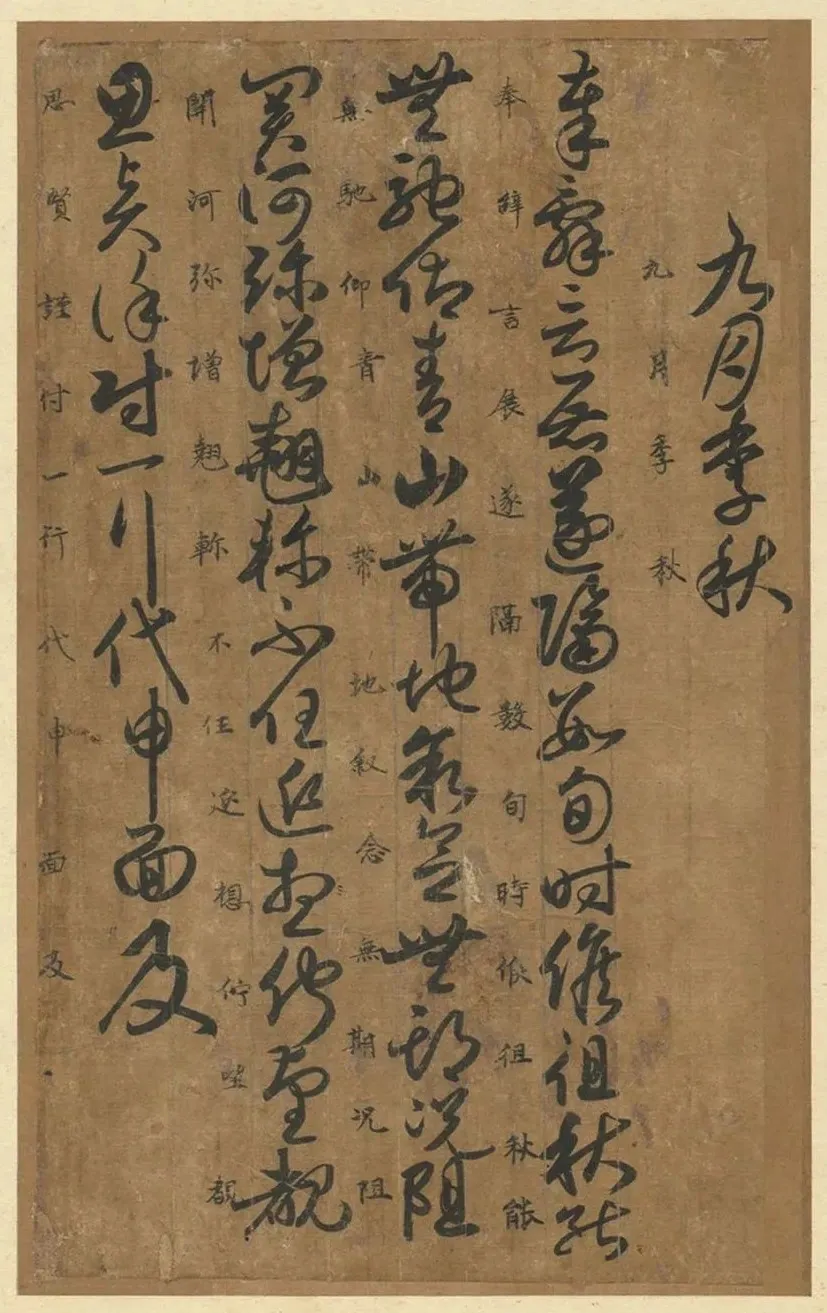 九月季秋
九月季秋
奉辭言展遂隔數旬時候徂秋能
奉辭言展遂隔數旬時候徂秋能
無馳仰青山帶地叙念無期況阻
無馳仰青山帶地叙念無期况阻
關河弥增翹軫不任延想佇望覩
聞河弥增翹軫不任延想佇望覩
思賢謹付一行代申面及
思賢謹付一行代申面及